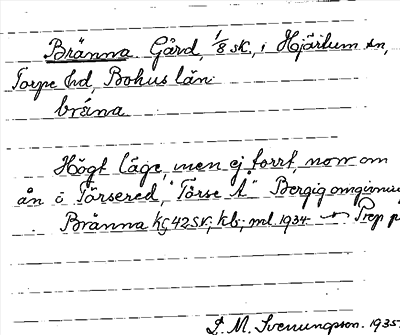 Bränna Gård, 1/8 sk, i Hjärtum sn,
Torpe hd, Bohus län.
bräna
Högt läge, men ej torrt, norr om
ån i Torsered, "Torse Å" Bergig omgivning
Bränna KG 42 SV; kb; ml 1934 Prep p
L. M. Svenungson. 1935